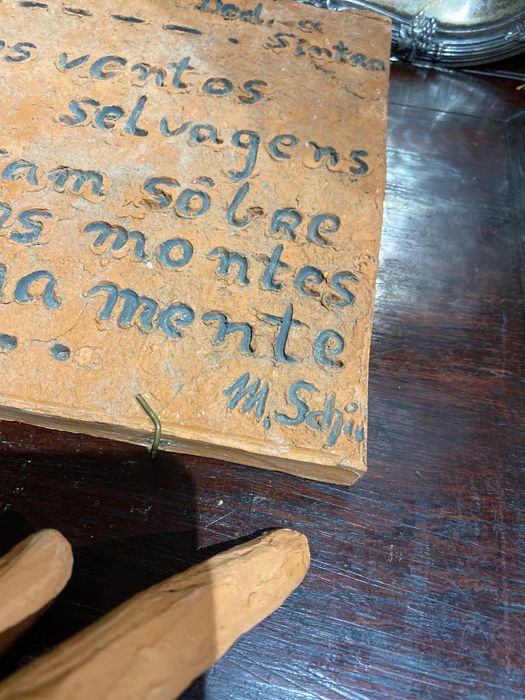 Ded. a
Sintra
os ventos
selvagens
ram sôbre
montes
mente
M. Schi